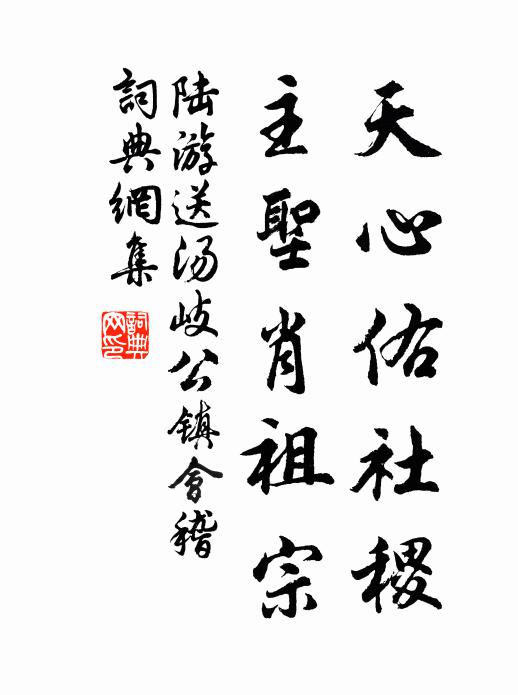 天心佑社稷
主聖肖祖宗
陆游送汤岐公镇會稽
詞典網集
詞典网印